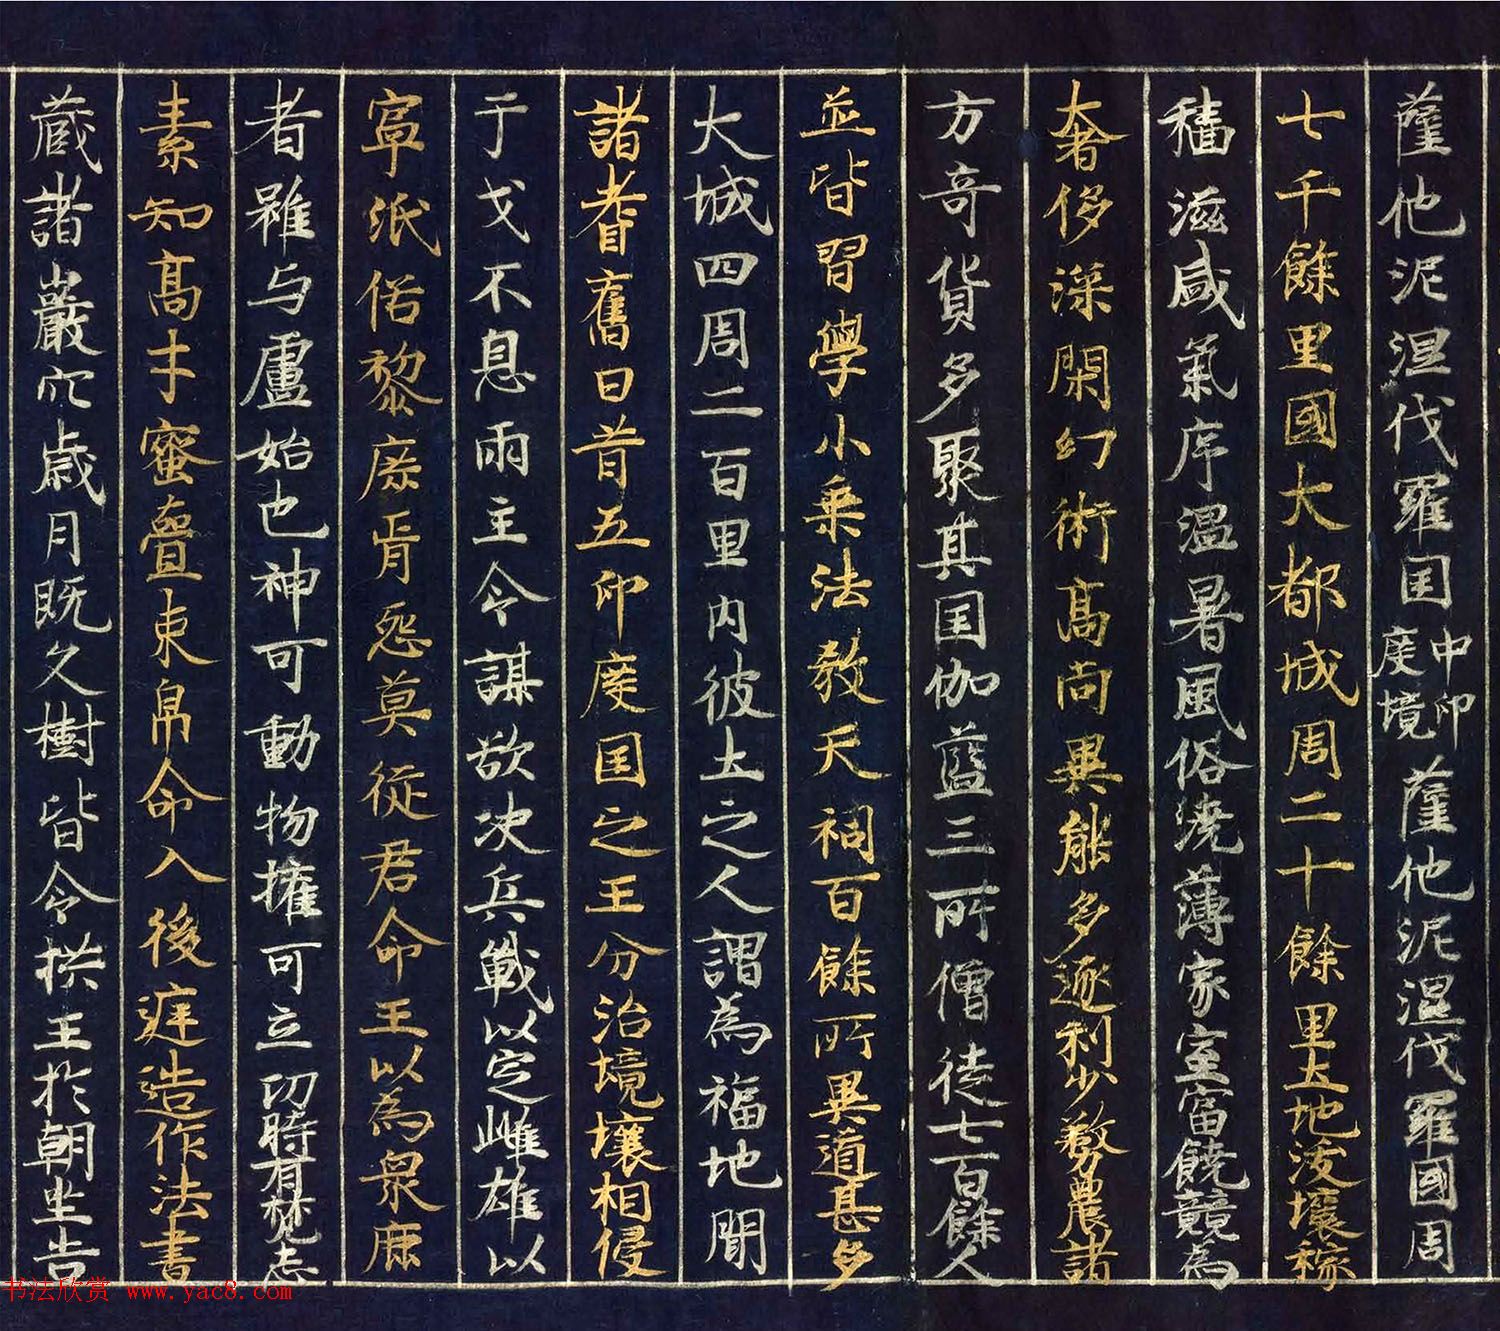 薩他泥湿伐羅国中印度境薩他泥温伐羅國周
七千餘里國大都城周二十餘里土地沃壤稼
穡滋盛氣序温暑風俗澆薄家室富饒競為
奢侈深閑幻術高尚異能多逐利少務農諸
方奇貨多聚其国伽藍三所僧徒七百餘人
並皆習學小乗法教天祠百餘所異道甚多
大城四周二百里内彼土之人謂為福地聞
諸耆舊曰昔五印度国之王分治境壤相侵
于戈不息兩主令謀欲決兵戰以定雌雄以
寧氓俗黎庶胥怨莫從君命王以為衆庶
者難与慮始也神可動物擁可立㓛時有梵志
素知高才蜜賷束帛命入後庭造作法書
蔵諸巖穴歳月既久樹皆合拱王於朝坐告
书法欣赏 www.yac8.com